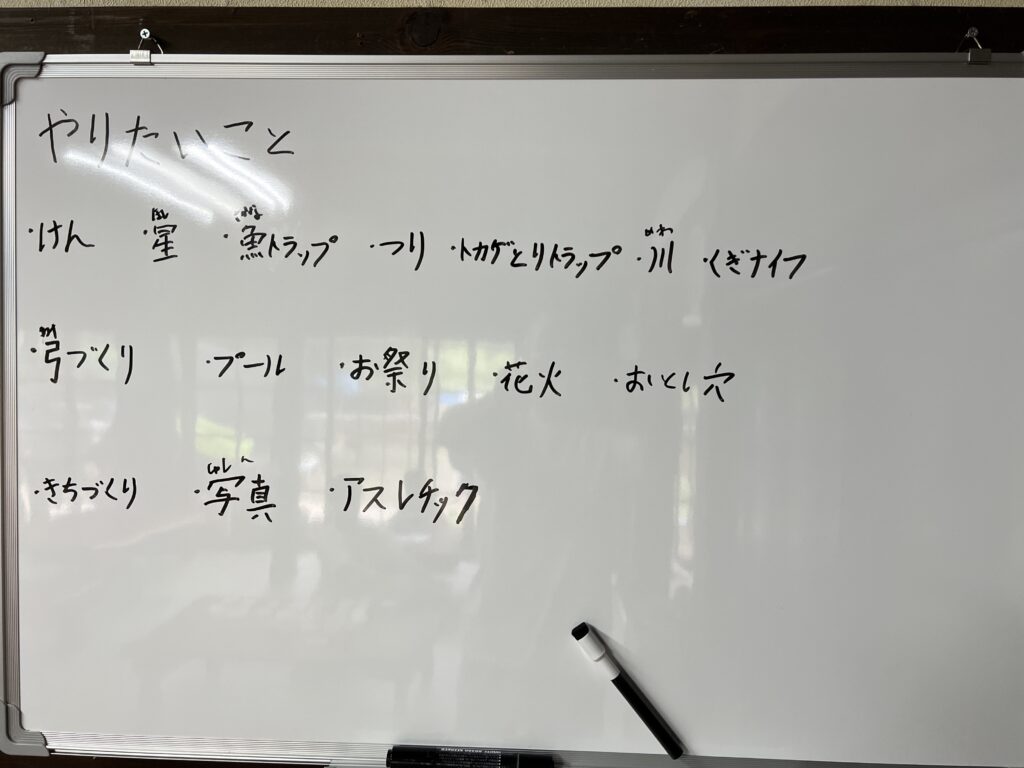 やりたいこと
・けん ・星 ・魚トラップ ・つり ・トカゲとりトラップ ・川 ・くぎナイフ
・弓づくり ・プール ・お祭り ・花火 ・おとし穴
・きちづくり ・写真 ・アスレチック